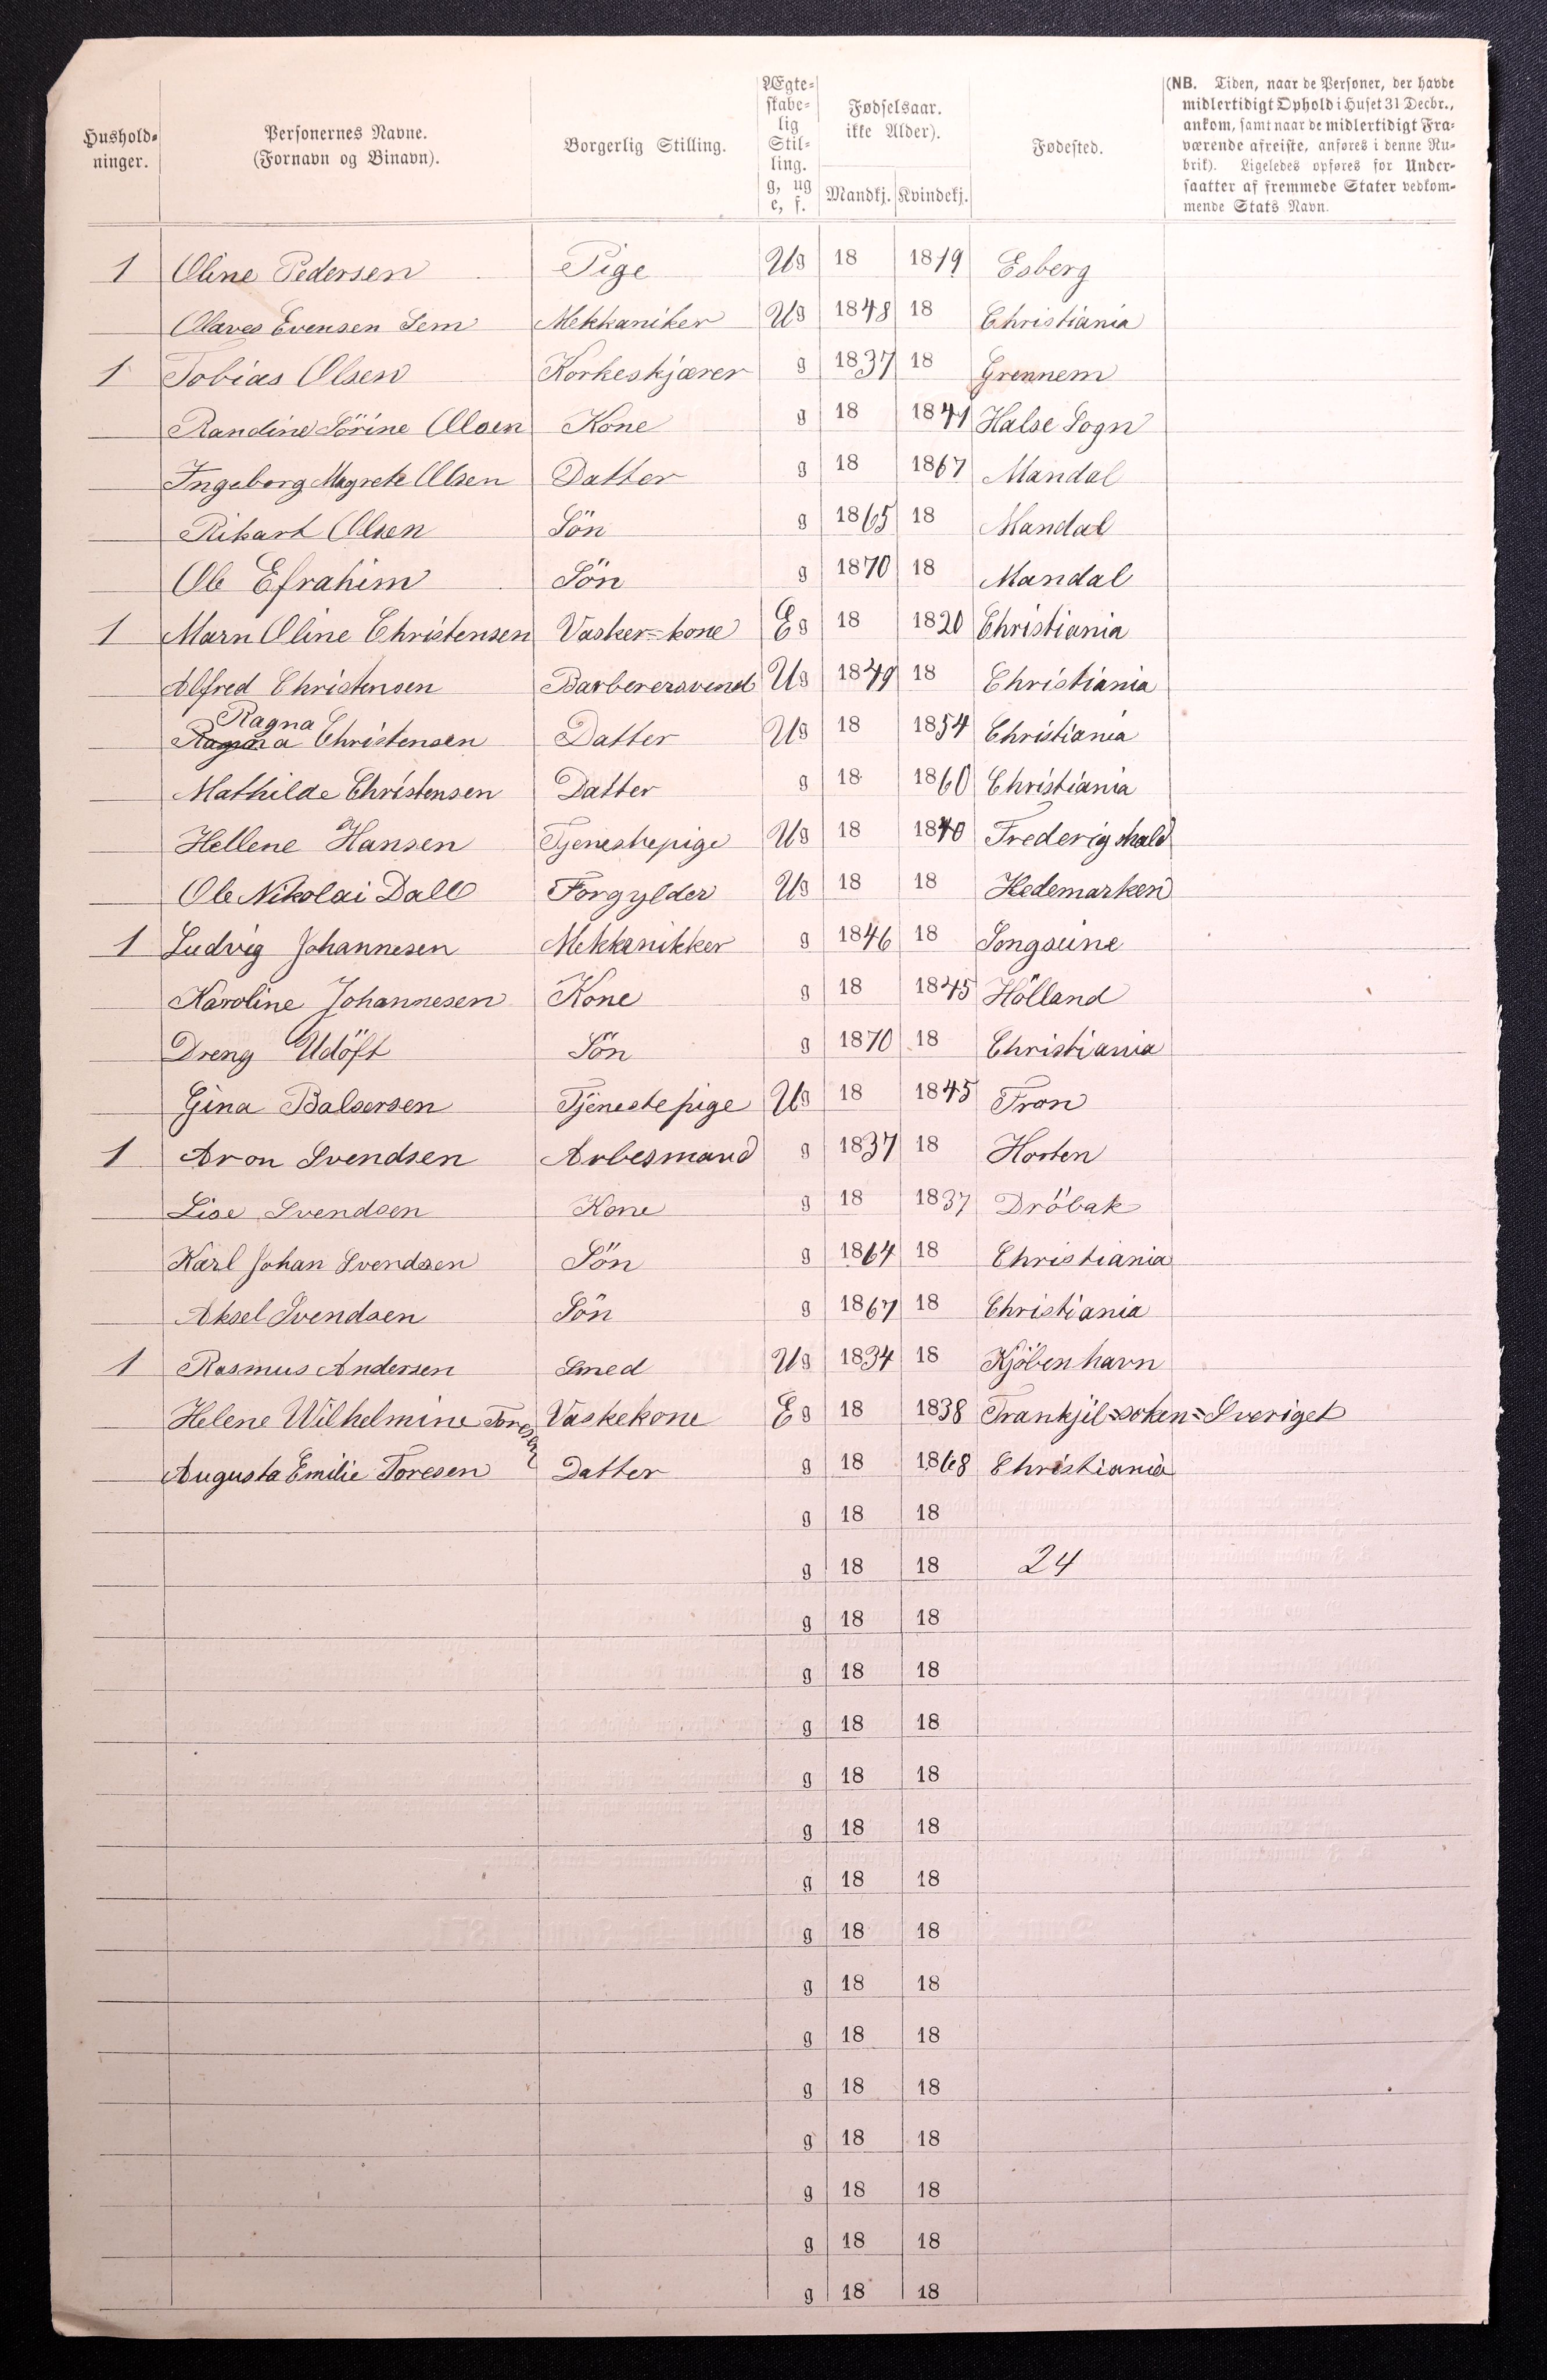 Hushold-
ninger.
Personernes Navne.
(Fornavn og Binavn).
Borgerlig Stilling.
Ægte-
skabe-
lig
Stil-
ling.
g, ug
e, f.
Fødselsaar.
ikke Alder).
Mandkj. Kvindekj.
Fødested.
(NB. Tiden, naar de Personer, der havde
midlertidigt Ophold i Huset 31 Decbr.,
ankom, samt naar de midlertidigt Fra-
værende afreiste, anføres i denne Ru-
brik). Ligeledes opføres for Under-
saatter af fremmede Stater vedkom-
mende Stats Navn.
1 Oline Pedersen Pige Ug 18 1819 Esberg
Olaves Evensen Sem Mekkaniker Ug 1848 18 Christiania
1 Tobias Olsen Korkeskjærer g 1837 18 Grennem
Randine Sörine Olsen Kone g 18 1841 Halse Sogn
Ingeborg Magrete Olsen Datter g 18 1867 Mandal
Rikart Olsen Sön g 1865 18 Mandal
Ole Efrahim Sön g 1870 18 Mandal
1 Marn Oline Christensen Vasker=kone Eg 18 1820 Christiania
Alfred Christensen Barberersvend Ug 1849 18 Christiania
Ragna
Christensen Datter Ug 18 1854 Christiania
Mathilde Christensen Datter g 18 1860 Christiania
Hellene Hansen Tjenestepige Ug 18 1840 Frederigshald
Ole Nikolai Dall Forgylder Ug 18 18 Hedemarken
1 Ludvig Johannesen Mekkanikker g 1846 18 Songsuine
Karoline Johannesen Kone g 18 1845 Hölland
Dreng Udöft Sön g 1870 18 Christiania
Gina Balsersen Tjenestepige Ug 18 1845 Fron
1 Aron Svendsen Arbesmand g 1837 18 Horten
Lise Svendsen Kone g 18 1837 Dröbak
Karl Johan Svendsen Sön g 1864 18 Christiania
Aksel Svendsen Sön g 1867 18 Christiania
1 Rasmus Andersen Smed Ug 1834 18 Kjöbenhavn
Helene Wilhelmine Toresen Vaskekone Eg 18 1838 Frankjil=soken=Sveriget
Augusta Emilie Toresen Datter g 18 1868 Christiania
g 18 18
g 18 18 24
g 18 18
g 18 18
g 18 18
g 18 18
g 18 18
g 18 18
g 18 18
g 18 18
g 18 18
g 18 18
g 18 18
g 18 18
g 18 18
g 18 18